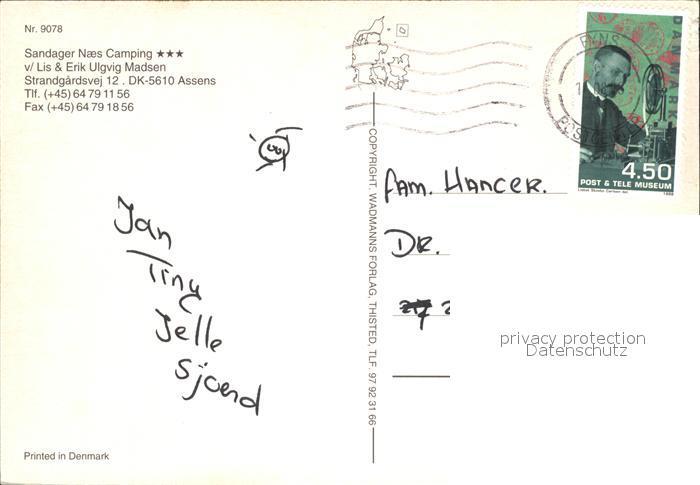 Nr. 9078
Sandager Næs Camping ★★★
v/ Lis & Erik Ulgvig Madsen
Strandgårdsvej 12 . DK-5610 Assens
Tlf. (+45) 64 79 11 56
Fax (+45) 64 79 18 56
Jan
Tiny
Jelle
Sjoerd
Printed in Denmark
COPYRIGHT, WADMANNS FORLAG, THISTED, TLF. 97 92 31 66
FYNS
POST
DANMARK
4.50
POST & TELE MUSEUM
1998
Fam. HANCER.
DR.
privacy protection
Datenschutz